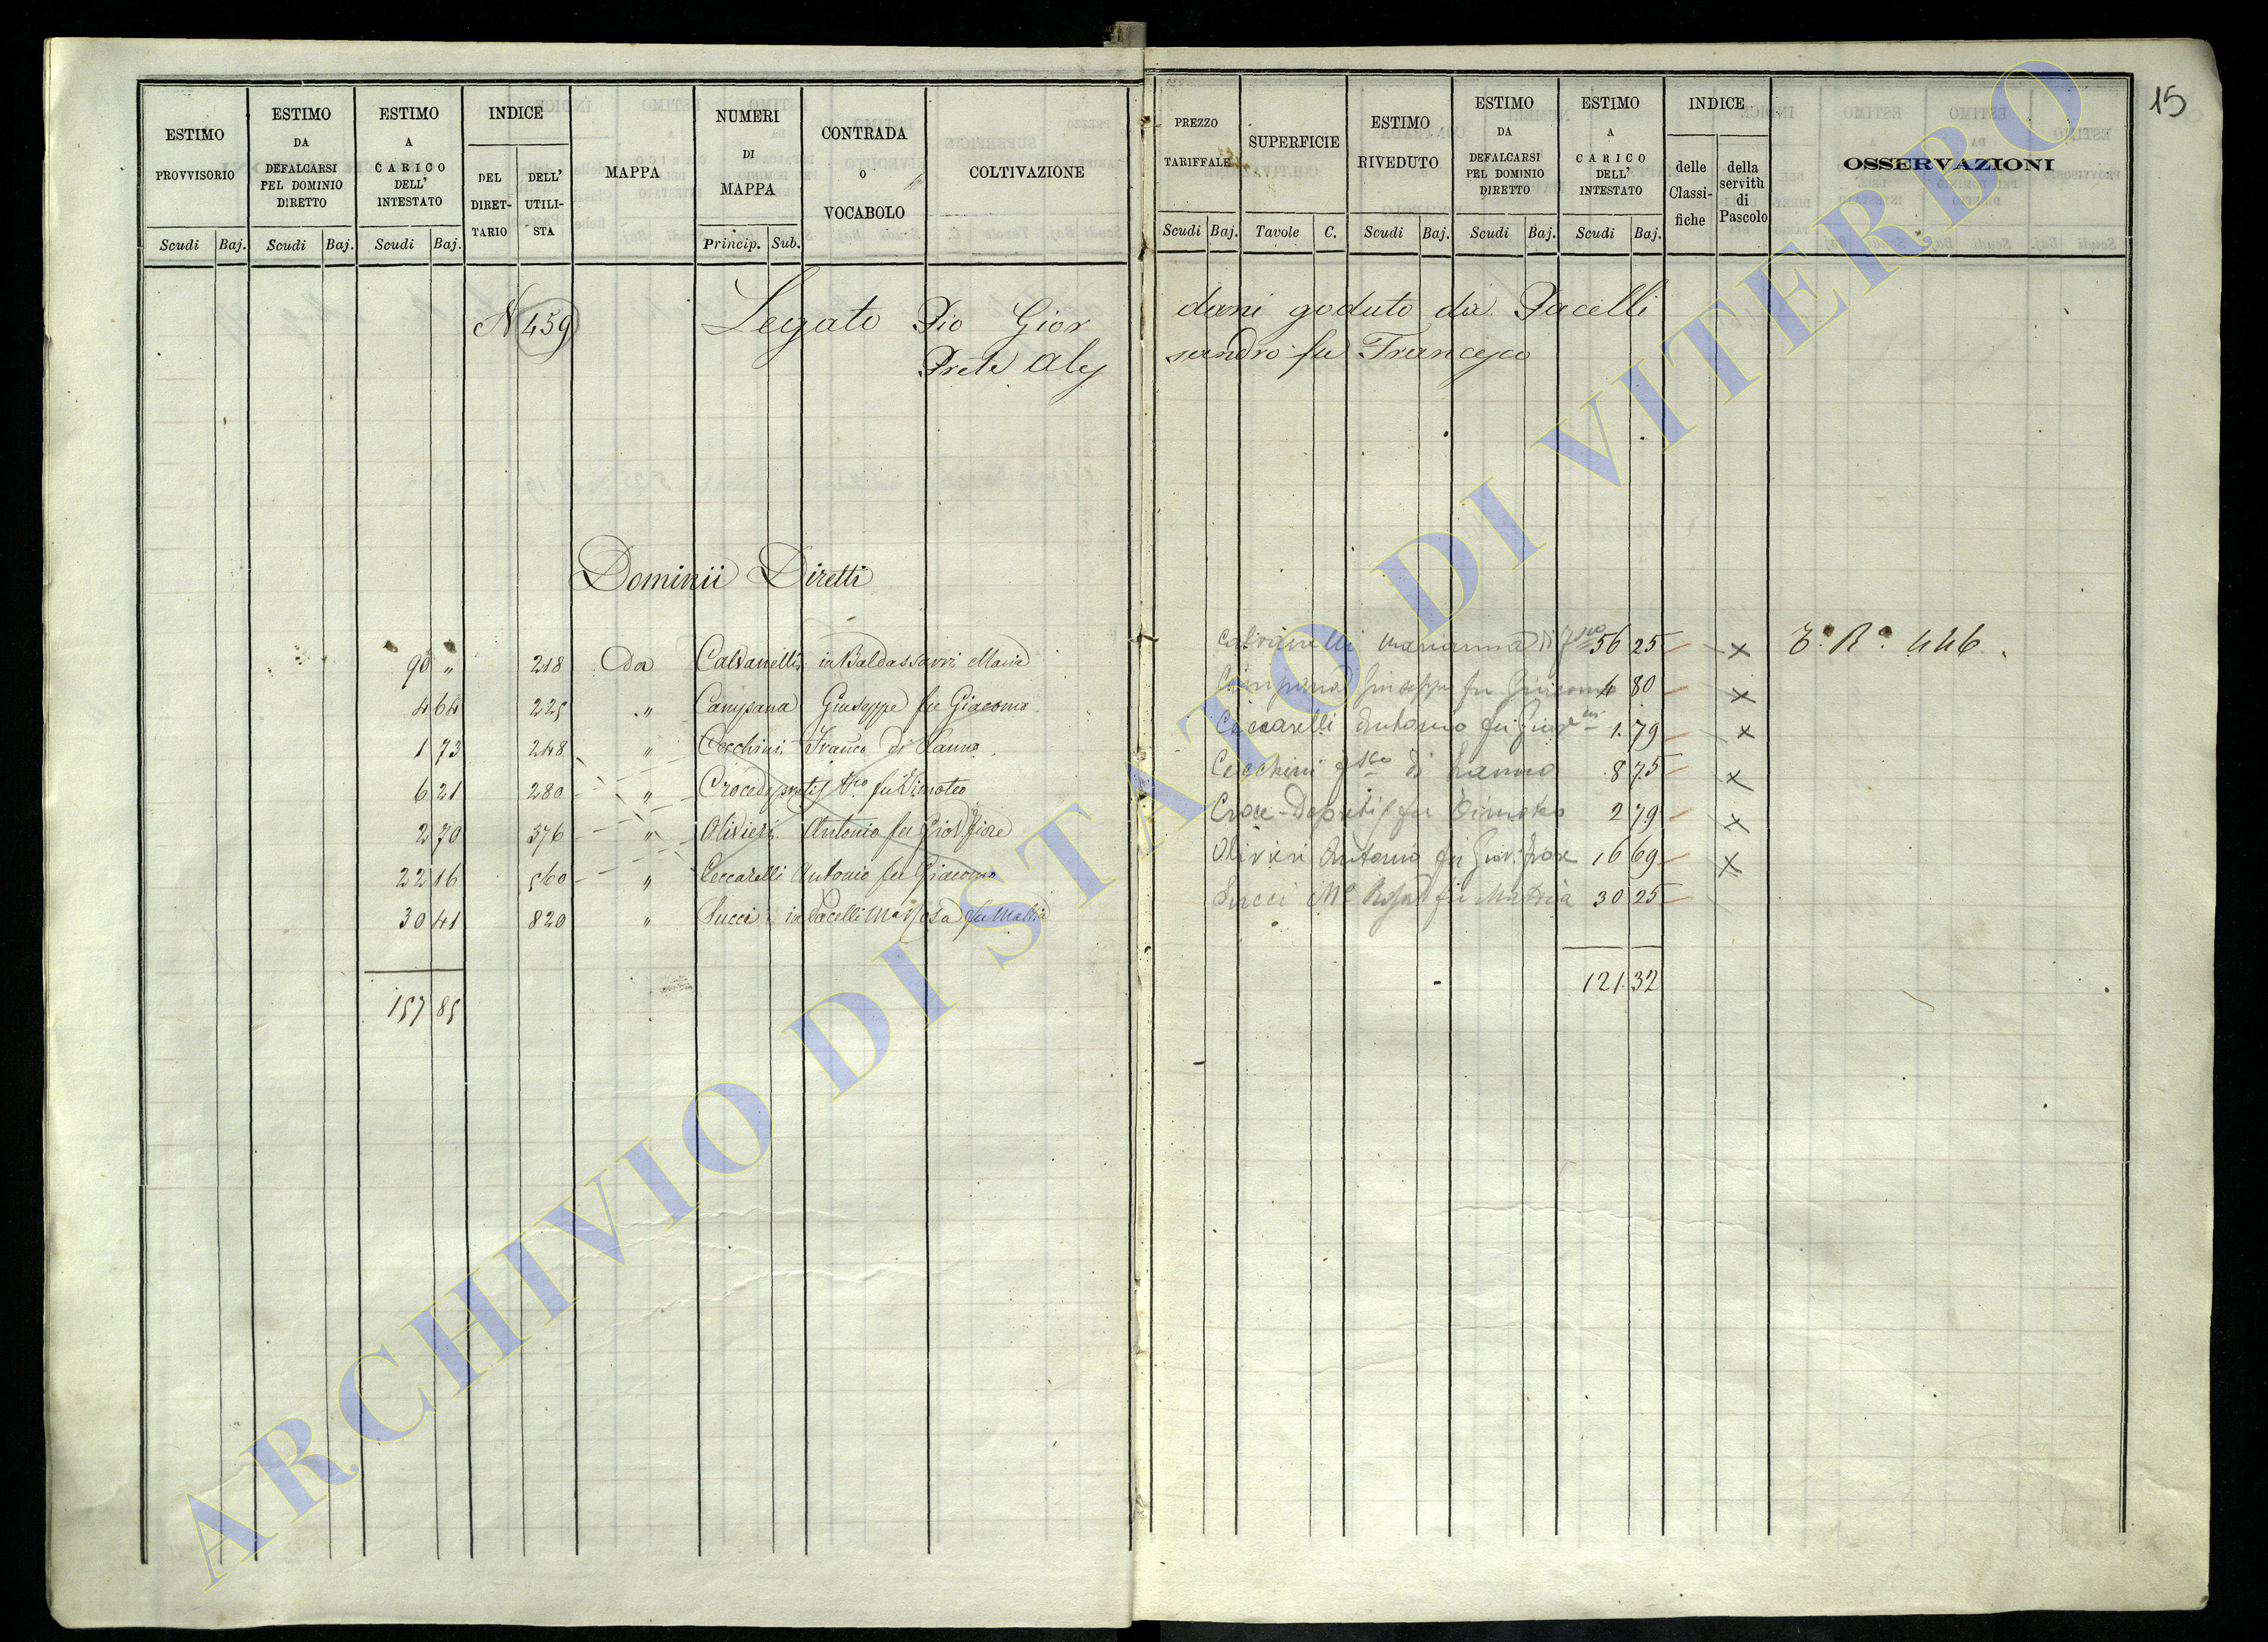 15
ESTIMO PROVVISORIO
ESTIMO DA DEFALCARSI PEL DOMINIO DIRETTO
ESTIMO A CARICO DELL' INTESTATO
INDICE
DEL DIRET-TARIO
DELL' UTILI-STA
MAPPA
NUMERI DI MAPPA
CONTRADA O VOCABOLO
COLTIVAZIONE
Scudi Baj. Scudi Baj. Scudi Baj. Princip. Sub.
PREZZO TARIFFALE
SUPERFICIE
ESTIMO RIVEDUTO
ESTIMO DA DEFALCARSI PEL DOMINIO DIRETTO
ESTIMO A CARICO DELL' INTESTATO
INDICE
delle Classi-fiche
della servitù di Pascolo
OSSERVAZIONI
Scudi Baj. Tavole C. Scudi Baj. Scudi Baj. Scudi Baj.
N 459 Legato Pio Gior dani goduto da Pacelli
Prete Ales sandro fu Francesco
Dominii Diretti
90 " 218 Da Calvanelli in Baldassarri Maria
4 64 225 " Campana Giuseppe fu Giacomo
1 73 248 " Cecchini Franco di Sanno
6 21 280 " Crocedeputis fu Timoteo
2 70 576 " Olivieri Antonio fu Giov. Fiore
22 16 560 " Ceccarelli Antonio fu Giacomo
30 41 820 " Succi in Pacelli Ma Rosa fu Mattia
157 85
Calvanelli Marianna di 56 25 x T.a R.a 446.
Campana Giuseppe fu Giacomo 4 80 x
Ceccarelli Antonio fu 1 79 x
Cecchini di Sanno 8 75 x
Croce-Deputis fu Timoteo 2 79 x
Olivieri Antonio fu Giov. Fiore 16 69 x
Succi Ma Rosa fu Mattia 30 25
121 32
ARCHIVIO DI STATO DI VITERBO